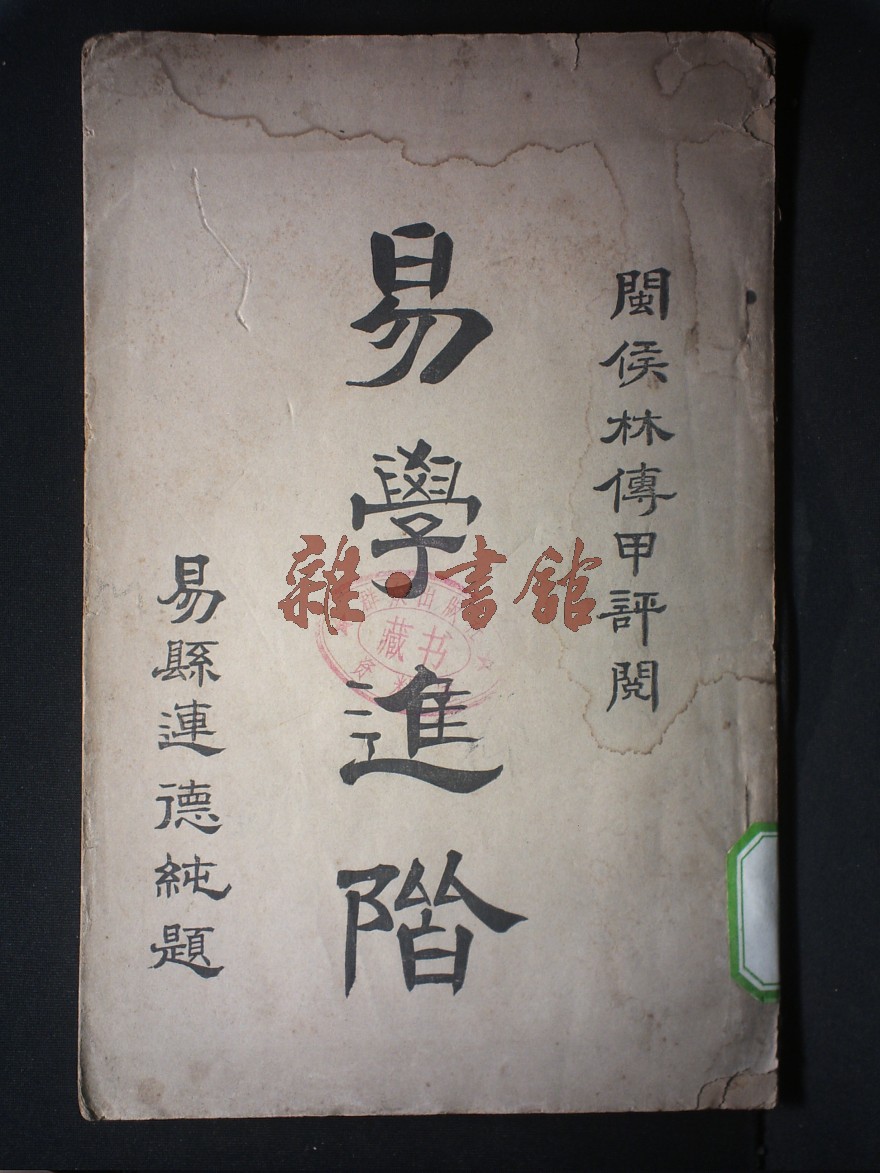 閩侯林傳甲評閱
易學進階
易縣連德純題
雜·書館
藏书